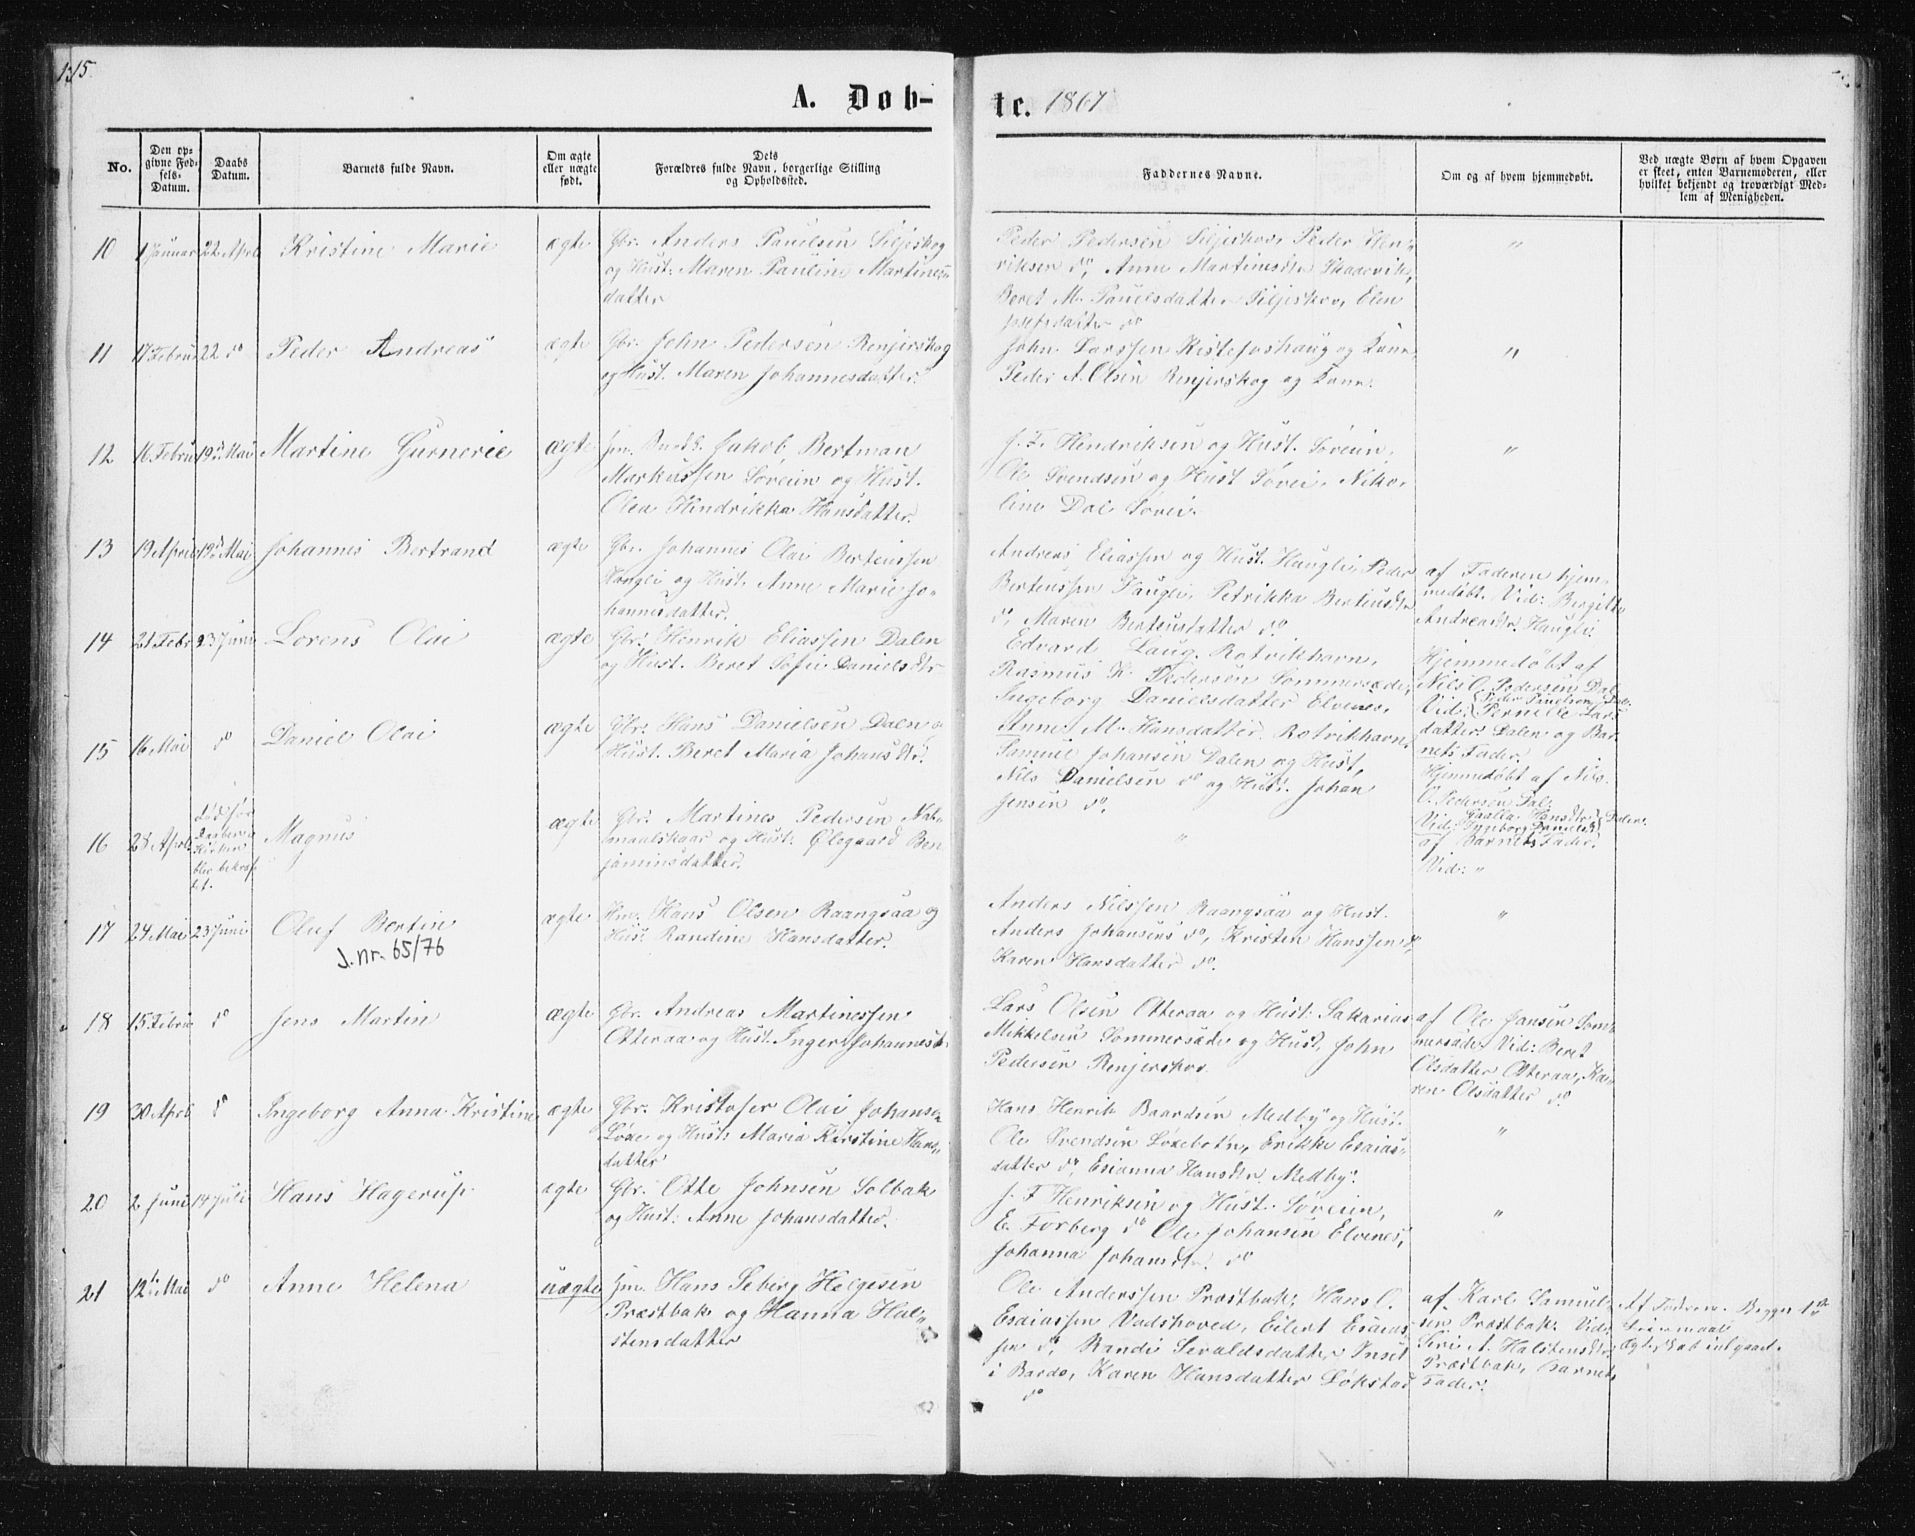 135.
A. Døb-
te. 1867
No.
Den op-
givne Fød-
sels-
Datum.
Daabs
Datum.
Barnets fulde Navn.
Om ægte
eller uægte
født.
Dets
Forældres fulde Navn, borgerlige Stilling
og Opholdssted.
Faddernes Navne.
Om og af hvem hjemmedøbt.
Ved uægte Børn af hvem Opgaven
er skeet, enten Barnemoderen, eller
hvilket bekjendt og troværdigt Med-
lem af Menigheden.
10 1 Januar 22 April Kristine Marie ægte Gbr. Anders Paulsen Siljeskog
og Hust: Maren Pauline Martines-
datter
Peder Pedersen Siljeskov, Peder Hen-
riksen do, Anne Martinesdtr Skaarvik,
Beret M. Paulsdatter Siljeskov, Elen
Josefsdatter do
"
11 17 Febru 22 do Peder Andreas ægte Gbr. John Pedersen Renjerskog
og Hust. Maren Johannesdatter.
John Larssen Kistefoshaug og Kone,
Peder A. Olsen Renjerskog og Kone.
"
12 16 Febru 19de Mai Martine Gurnerie ægte Jakob Bertman
Markussen Søreien og Hust.
Olea Hendrikka Hansdatter.
J. F. Hendriksen og Hust. Søreien,
Ole Svendsen og Hust Søvei, Niko-
line Dal Søvei.
"
13 19 April 19de Mai Johannes Bertrand ægte Gbr. Johannes Olai Berteussen
Haugli og Hust. Anne Marie Jo-
hannesdatter.
Andreas Eliassen og Hust. Haugli, Peder
Berteussen Haugli, Petrikka Berteusdtr
do, Maren Berteusdatter do.
af Faderen hjem-
medøbt. Vid: Birgitte
Andreasdtr. Haugli.
14 21 Febr 23 Juni Lorens Olai ægte Gbr. Henrik Eliassen Dalen
og Hust. Beret Sofie Danielsdtr
Edvard Laug. Rotvikhavn,
Rasmus K. Pedersen Sommersæde,
Ingeborg Danielsdatter Elvenes,
Anne M. Hansdatter. Rotvikhavn.
Hjemmedøbt af
Nils O. Pedersen Dal
Vid: Peder Paulsen Dal.
Pernille Lars
datter Dalen og Bar-
nets Fader.
15 16 Mai do Daniel Olai ægte Gbr. Hans Danielsen Dalen og
Hust. Beret Maria Johansdtr.
Samuel Johansen Dalen og Hust,
Nils Danielsen do og Hust. Johan
Jensen do.
Hjemmedøbt af Nils
O. Pedersen Dal.
Vid: Hansdtr Dalen.
Ingeborg Danielsd
16 28 April Død før
blev bekræf-
tet.
Magnus ægte Gbr. Martines Pedersen
og Hust: Ølegaard Ben
jaminsdatter.
"
af Barnets Fader.
Vid: "
17 24 Mai 23 Juni. Oluf Bertin
J.nr. 65/76
ægte Hm. Hans Olsen Raangsaa og
Hus. Randine Hansdatter.
Anders Nilssen Raangsaa og Hust.
Anders Johansens do, Kristen Hanssen do,
Karen Hansdatter do.
"
18 15 Febru do Jens Martin ægte Gbr. Andreas Martinessen
Otteraa og Hust. Inger Johannesd.
Lars Olsen Otteraa og Hust. Sakarias
Mikkelsen Sommersæde og Hust, John
Pedersen Renjerskov
af Ole Jansen Som-
mersæde. Vid: Beret
Olsdatter Otteraa, Ka-
ren Olsdatter do.
19 30 April do Ingeborg Anna Kristine ægte Gbr. Kristofer Olai Johans-
Løxe og Hust: Maria Kirstine Hans-
datter
Hans Henrik Baardsen Medby og Hust.
Ole Svendsen Løxebotn, Erikke Esaias-
datter do, Esianna Hansdtr. Medby.
"
20 2 Juni 14 Juli Hans Hagerup ægte Gbr. Otte Johnsen Solbak
og Hust: Anne Johansdatter.
J. F Henriksen og Hust. Søreien,
E. Forberg do Ole Johansen Elvenes,
Johanna Johansdtr. do
"
21 12te Mai do Anne Helena uægte Hans Seberg Helgesen
Præstbak og Hanna Hal-
stensdatter
Ole Anderssen Præstbak, Hans O.
Esaiassen Vadshoved, Eilert Esaias-
sen do, Randi Sevaldsdatter Inset
i Bardo, Karen Hansdatter Løkstad
do
af Karl Samuel-
sen Præstbak. Vid:
Siri A. Halstensdtr.
Præstbak, Barnets
Fader.
Af Faderen. Begges 1ste
Leiermaal
Ægteskab indgaaet.